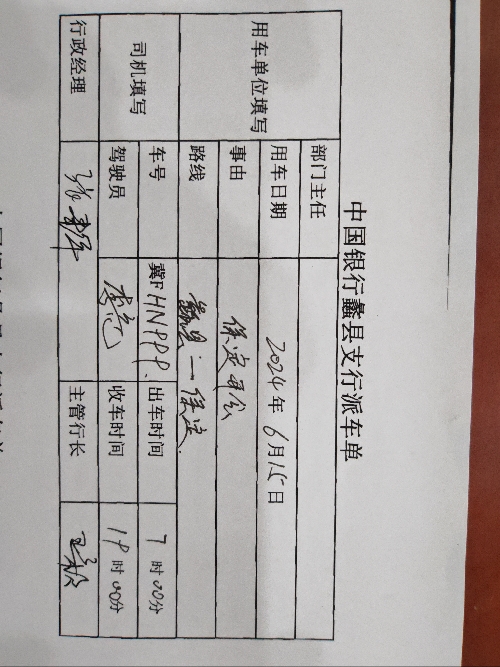 中国银行蠡县支行派车单
用车单位填写 部门主任
用车日期 2024年6月15日
事由 保定开会
路线 蠡县—保定
司机填写 车号 冀F HNPPP 出车时间 7时00分
驾驶员 收车时间 19时00分
行政经理 主管行长